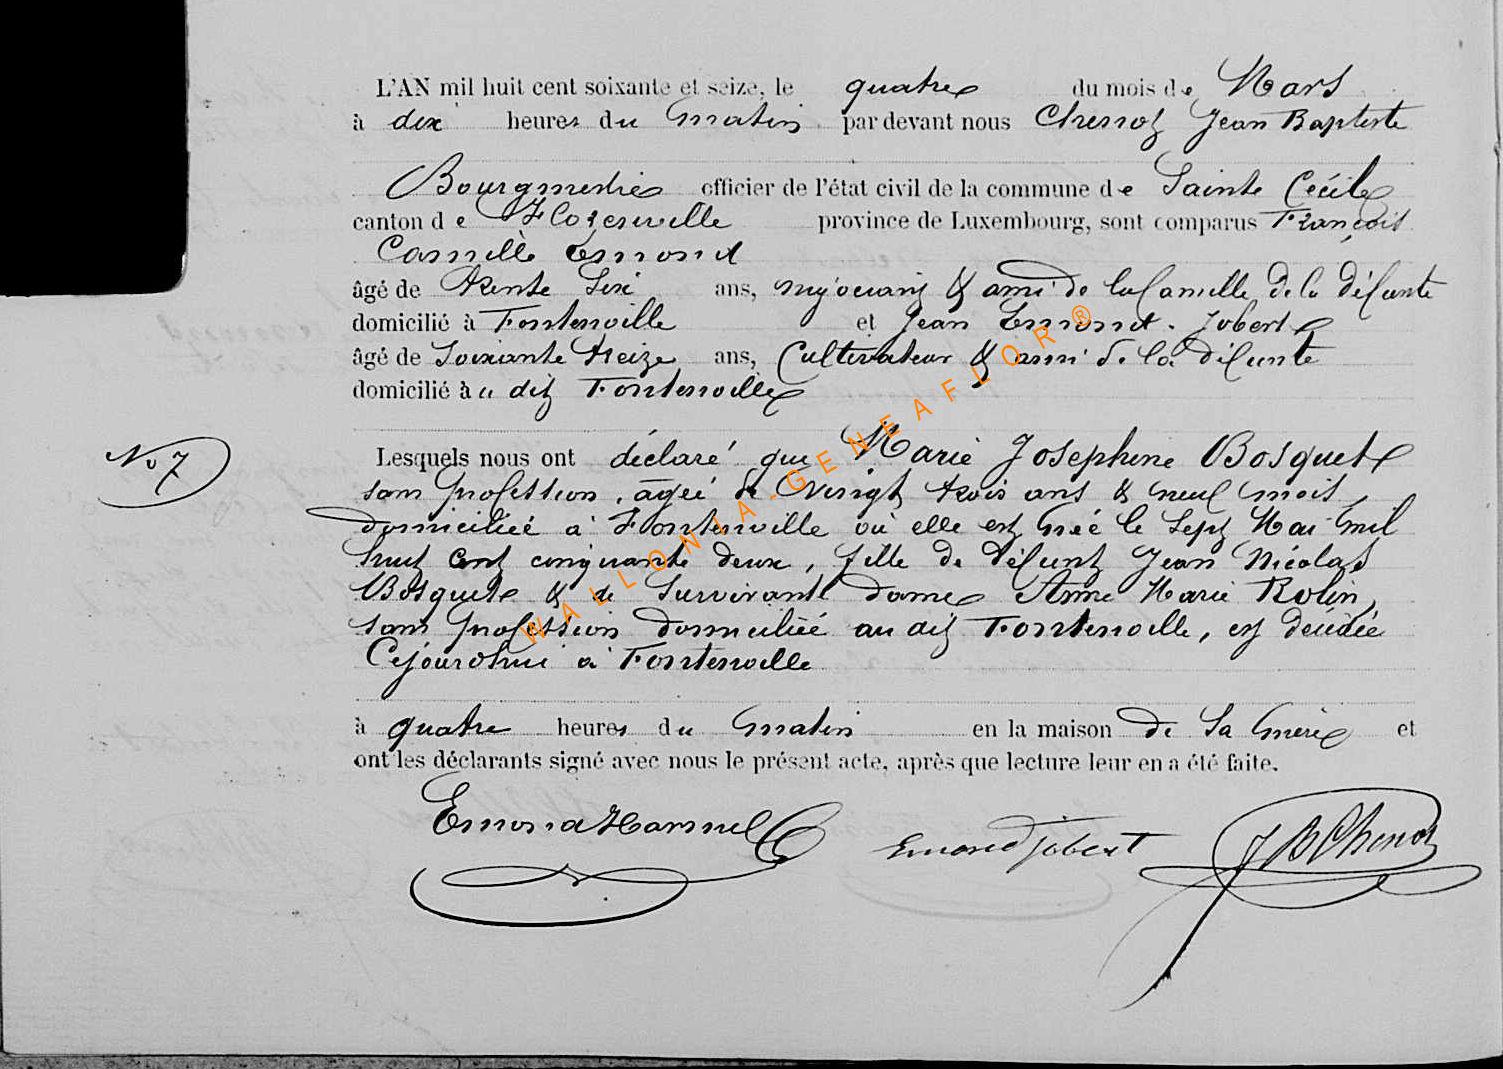 L'AN mil huit cent soixante et seize, le quatre du mois de Mars
à dix heures du matin par devant nous Chenot Jean Baptiste
Bourgmestre officier de l'état civil de la commune de Sainte Cécile
canton de Florenville province de Luxembourg, sont comparus François
Camille Emond
âgé de trente six ans, négociant & ami de la famille de la défunte
domicilié à Fontenoille et Jean Emond-Jobert
âgé de Soixante treize ans, Cultivateur & ami de la défunte
domicilié au dit Fontenoille
No 7
Lesquels nous ont déclaré que Marie Josephine Bosquet
sans profession, âgée de vingt trois ans & neuf mois,
domiciliée à Fontenoille où elle est née le sept Mai mil
huit cent cinquante deux, fille de défunt Jean Nicolas
Bosquet & de Survivant dame Anne Marie Rolin,
sans profession domiciliée au dit Fontenoille, est décédée
Cejourdhui à Fontenoille
à quatre heures du matin en la maison de Sa mère et
ont les déclarants signé avec nous le présent acte, après que lecture leur en a été faite.
Emond Hamel Emond Jobert JB Chenot
WALLONIA-GENEAFLOR®